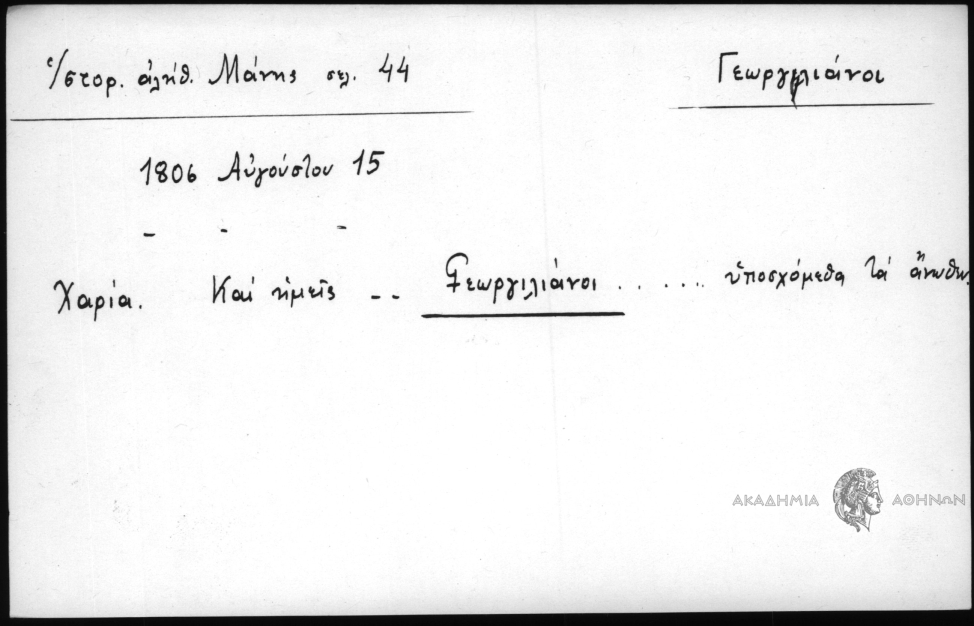 Ἱστορ. ἀλήθ. Μάνης σελ. 44
Γεωργιλιάνοι
1806 Αὐγούστου 15
- - -
Χαρία. Καί ἡμεῖς -- Γεωργιλιάνοι ...... ὑποσχόμεθα τά ἄνωθεν
ΑΚΑΔΗΜΙΑ ΑΘΗΝΩΝ